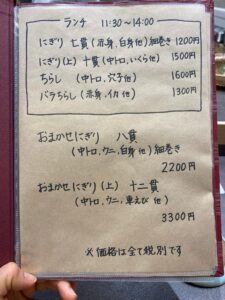 ランチ 11:30~14:00
にぎり 七貫 (赤身,白身他) 細巻き 1200円
にぎり(上) 十貫 (中トロ,いくら他) 1500円
ちらし (中トロ,穴子他) 1600円
バラちらし (赤身,イカ他) 1300円
おまかせにぎり 八貫
(中トロ,ウニ,白身他) 細巻き
2200円
おまかせにぎり(上) 十二貫
(中トロ,ウニ,車えび他)
3300円
※価格は全て税別です